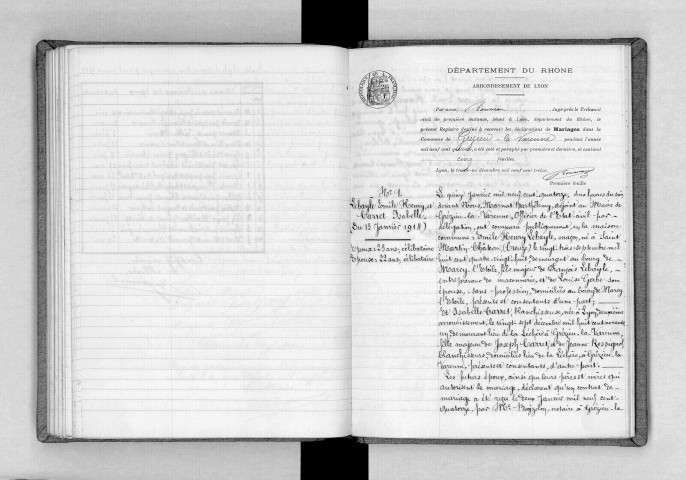 DÉPARTEMENT DU RHONE
ARRONDISSEMENT DE LYON
Par nous, Juge près le Tribunal
civil de première instance, séant à Lyon, département du Rhône, le
présent Registre destiné à recevoir les déclarations de Mariages dans la
Commune de Grézieu-la-Varenne pendant l'année
mil neuf cent quatorze, a été coté et paraphé par première et dernière, et contient
feuilles.
Lyon, le trente-un décembre mil neuf cent treize.
Première feuille
N° 1.
Lebayle Emile Henry, et
Carret Isabelle.
(Du 15 Janvier 1914)
Epoux: 25 ans, célibataire
Epouse: 22 ans, célibataire
Le quinze Janvier mil neuf cent quatorze, deux heures du soir
devant Nous, Marinot Barthélemy, adjoint au Maire de
Grézieu-la-Varenne, Officier de l'Etat civil par
délégation, ont comparu publiquement, en la maison
commune: Emile Henry Lebayle, maçon, né à Saint
Martin-Château (Creuse) le vingt trois septembre mil
huit cent quatre vingt huit, demeurant au bourg de
Marcy-l'Etoile, fils majeur de François Lebayle,
entrepreneur de maçonnerie, et de Louise son
épouse, sans profession, domiciliés au bourg de Marcy
l'Etoile, présents et consentants d'une part;
et Isabelle Carret, blanchisseuse, née à Lyon deuxième
arrondissement, le vingt sept décembre mil huit cent nonante
un, demeurant lieu de la Léchère à Grézieu-la-Varenne,
fille majeure de Joseph Carret, et de Jeanne Rossignol
blanchisseurs, domiciliés lieu de la Léchère, à Grézieu-la
Varenne, présents et consentants, d'autre part.
Les futurs époux, ainsi que leurs pères et mères qui
autorisent le mariage, déclarent qu'un contrat de
mariage a été reçu le deux Janvier mil neuf cent
quatorze, par Me notaire à Grézieu-la-